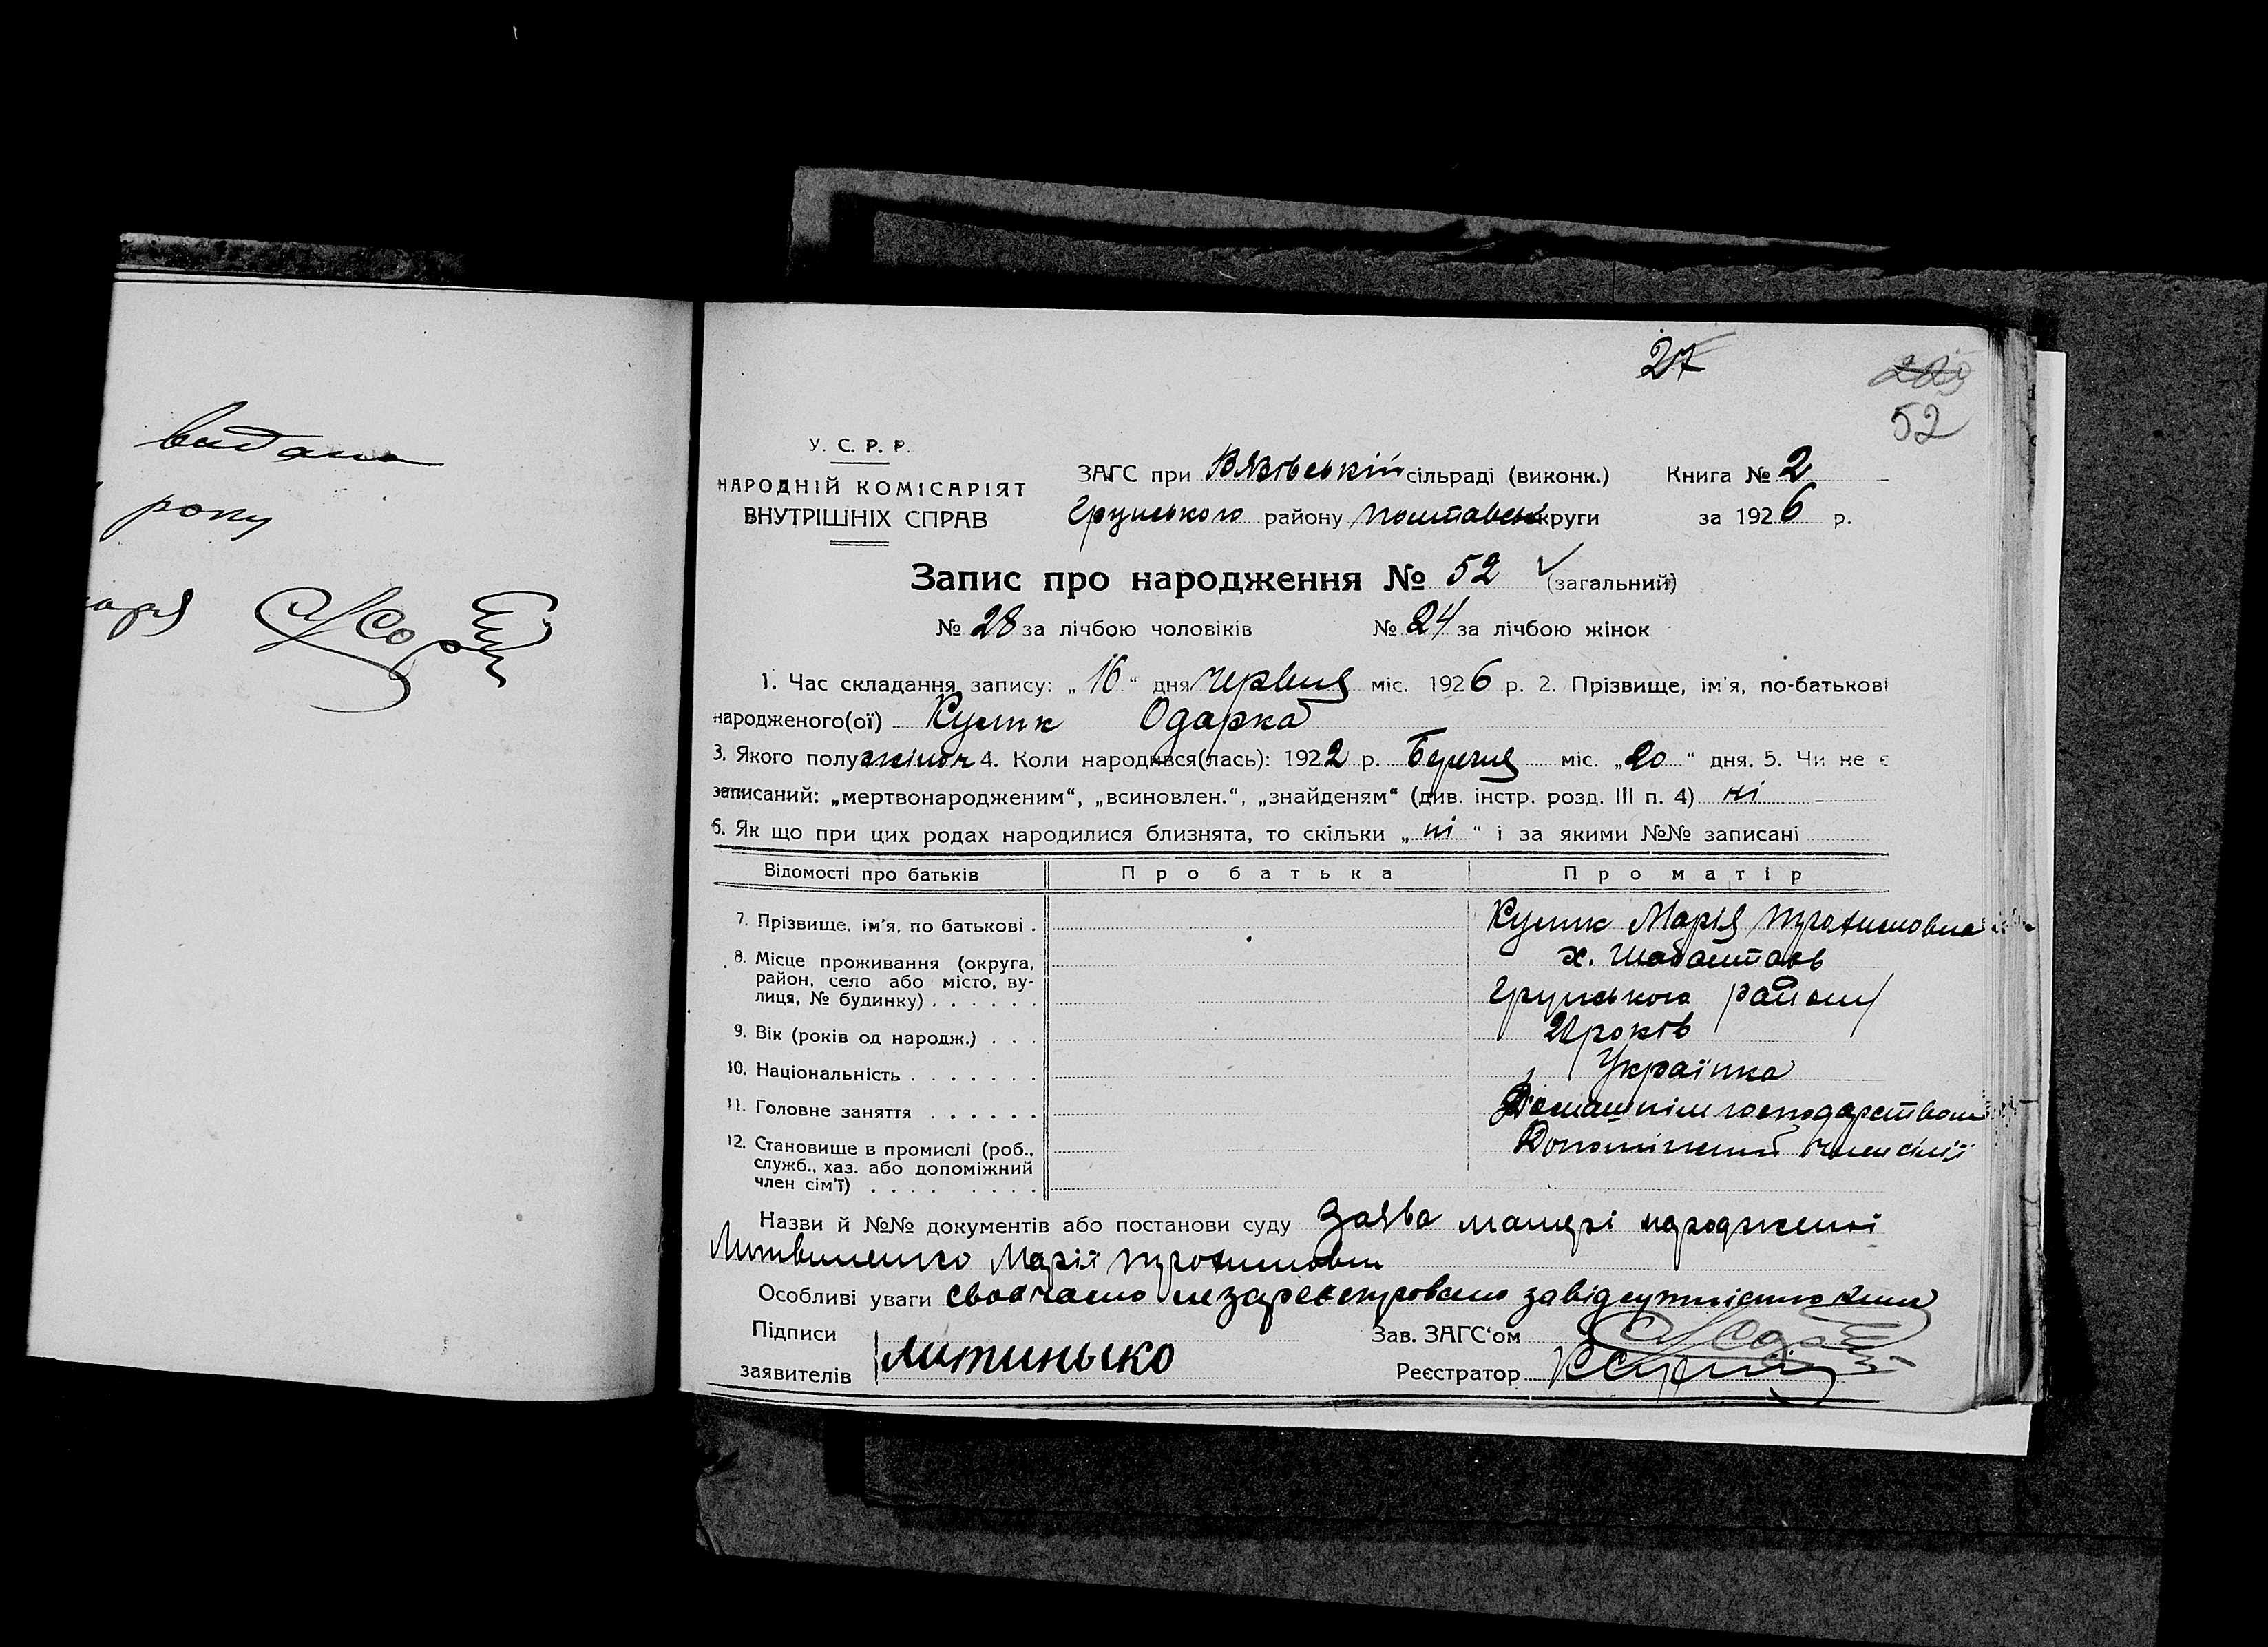 видана
року
27
229
52
У. С. Р. Р.
НАРОДНІЙ КОМІСАРІЯТ
ВНУТРІШНІХ СПРАВ
ЗАГС при Вязівській сільраді (виконк.) Книга № 2
Грунського району Полтавськ округи за 1926 р.
Запис про народження № 52 (загальний)
№ 28 за лічбою чоловіків № 24 за лічбою жінок
1. Час складання запису: „16“ дня червня міс. 1926 р. 2. Прізвище, ім'я, по-батькові
народженого(ої) Кулик Одарка
3. Якого полу жіноч 4. Коли народився(лась): 1922 р. Березня міс. „20“ дня. 5. Чи не є
записаний: „мертвонародженим“, „всиновлен.“, „знайденям“ (див. інстр. розд. III п. 4) ні
6. Як що при цих родах народилися близнята, то скільки „ні“ і за якими №№ записані
Відомості про батьків Про батька Про матір
7. Прізвище, ім'я, по батькові . Кулик Марія Трохимовна
8. Місце проживання (округа, х. Шабалтаєв
район, село або місто, ву-
лиця, № будинку) . . . . . . Грунського району
9. Вік (років од народж.) . . . років
10. Національність . . . . . . . Українка
11. Головне заняття . . . . . . Домашнім господарством
12. Становище в промислі (роб., Допоміжний член сімї
служб., хаз. або допоміжний
член сім'ї) . . . . . . . .
Назви й №№ документів або постанови суду Заява матері народженої
Литвиненко Марії Трохимовни
Особливі уваги своєчасно незареєстровано завідсутністю книг
Підписи Зав. ЗАГС'ом
заявителів литиныко Реєстратор